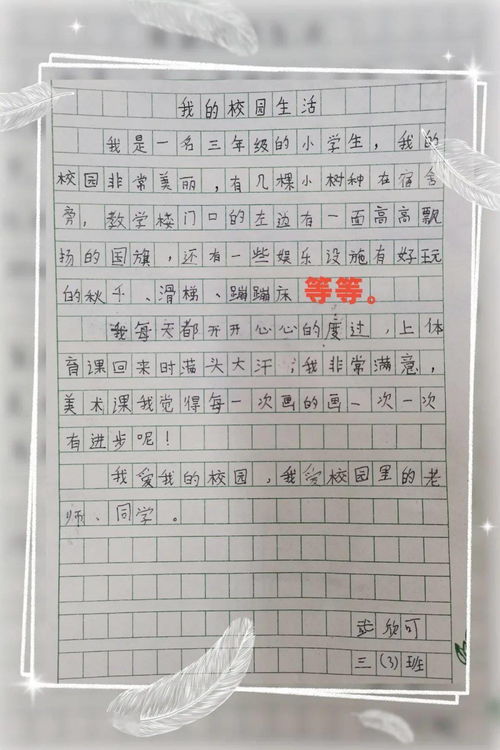 我的校园生活
我是一名三年级的小学生，我的
校园非常美丽，有几棵小树种在宿舍
旁，教学楼门口的左边有一面高高飘
扬的国旗，还有一些娱乐设施有好玩
的秋千、滑梯、蹦蹦床等等。
我每天都开开心心的度过，上体
育课回来时满头大汗；我非常满意，
美术课我觉得每一次画的画一次一次
有进步呢！
我爱我的校园，我爱校园里的老
师、同学。
欣可
三（3）班